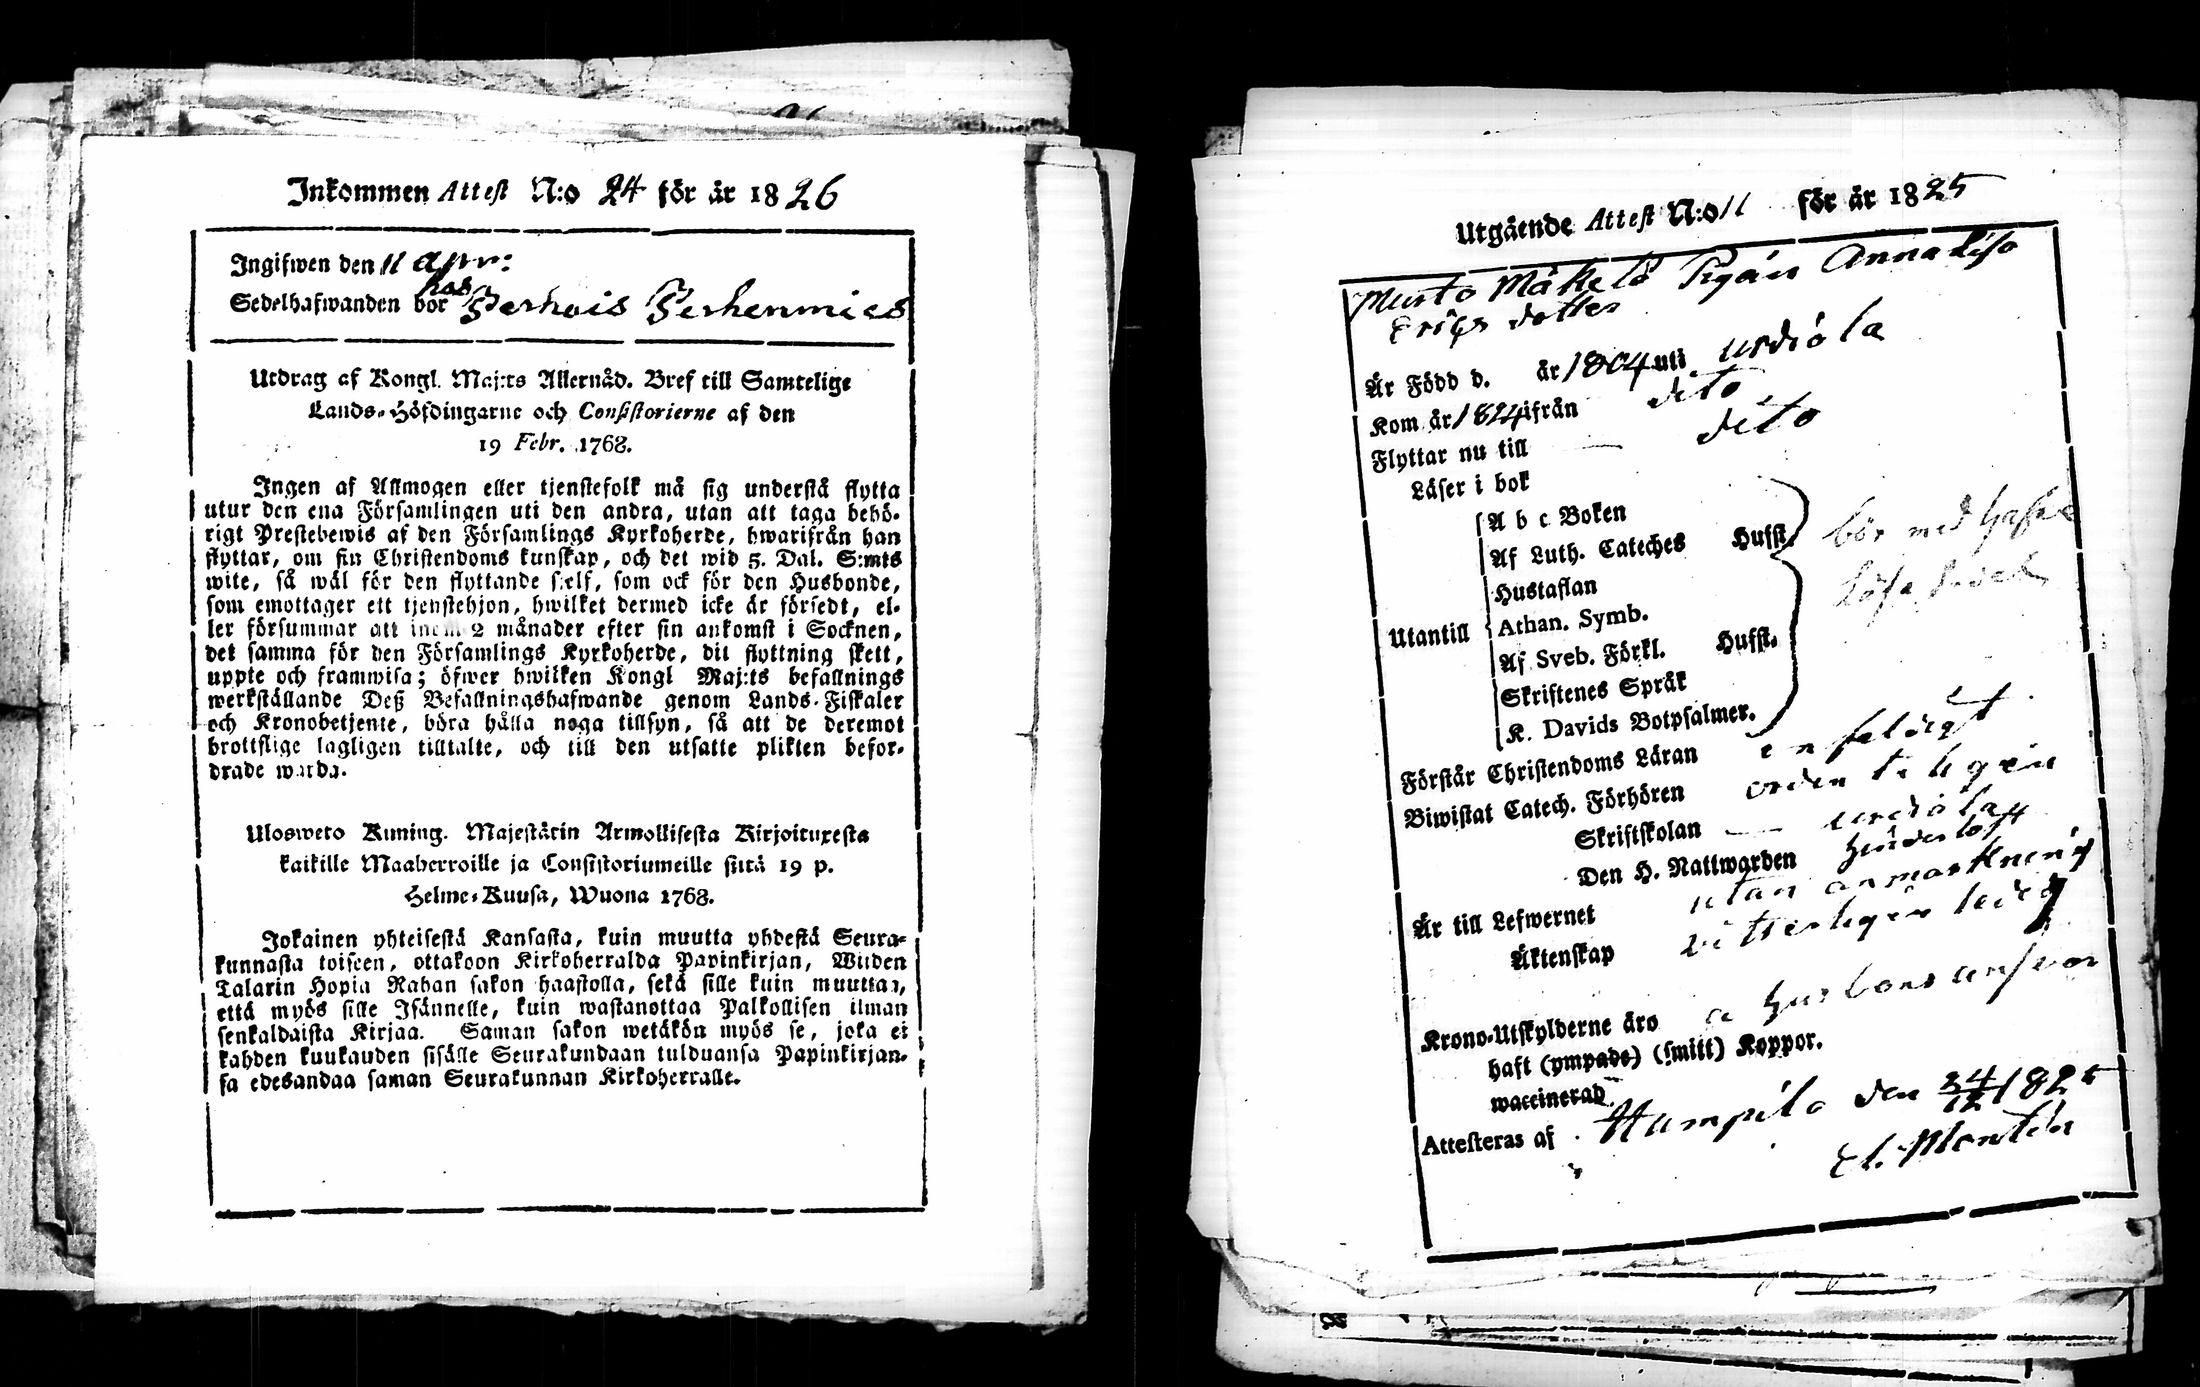 Inkommen Attest N:o 24 för år 1826
Ingifwen den 11 apr:
hos
Sedelhafwanden bor Perhois Perhenmies
Utdrag af Kongl. Maj:ts Allernåd. Bref till Samtelige
Lands-Höfdingarne och Consistorierne af den
19 Febr. 1768.
Ingen af Allmogen eller tjenstefolk må sig understå flytta
utur den ena Församlingen uti den andra, utan att taga behö-
rigt Prestebewis af den Församlings Kyrkoherde, hwarifrån han
flyttar, om sin Christendoms kunskap, och det wid 5. Dal. S:mts
wite, så wäl för den flyttande sjelf, som ock för den Husbonde,
som emottager ett tjenstehjon, hwilket dermed icke är försedt, el-
ler försummar att inom 2 månader efter sin ankomst i Socknen,
det samma för den Församlings Kyrkoherde, dit flyttning skett,
uppte och framwisa; öfwer hwilken Kongl Maj:ts befallnings
werkställande Deß Befallningshafwande genom Lands-Fiskaler
och Kronobetjente, böra hålla noga tillsyn, så att de deremot
brottslige lagligen tilltalte, och till den utsatte plikten befor-
drade warda.
Ulosweto Kuning. Majestätin Armollisesta Kirjoituxesta
kaikille Maaherroille ja Consistoriumeille siitä 19 p.
Helme-Kuusa, Wuona 1768.
Jokainen yhteisestä Kansasta, kuin muutta yhdestä Seura-
kunnasta toiseen, ottakoon Kirkoherralda Papinkirjan, Wiiden
Talarin Hopia Rahan sakon haastolla, sekä sille kuin muuttaa,
että myös sille Isännelle, kuin wastanottaa Palkollisen ilman
senkaldaista Kirjaa. Saman sakon wetäkön myös se, joka ei
kahden kuukauden sisälle Seurakundaan tulduansa Papinkirjan-
sa edesandaa saman Seurakunnan Kirkoherralle.
Utgående Attest N:o 11 för år 1825
Murto Mäkelä Pigan Anna Lisa
Erics dotter
Är Född d. år 1804 uti Urdiala
Kom år 1824 ifrån dito
Flyttar nu till dito
Läser i bok
Utantill
A b c Boken
Af Luth. Cateches Hufst.
Hustaflan
Athan. Symb.
Af Sveb. Förkl. Hufst.
Skriftenes Språk
K. Davids Botpsalmer.
bör med
Förstår Christendoms Läran enfaldigt
Biwistat Catech. Förhören ordenteligen
Skriftskolan
Den H. Nattwarden
Är till Lefwernet utan anmärkning
Äktenskap witterligen ledig
Krono-Utskylderne äro
haft (ympade) (smitt) Koppor.
waccinerad
Attesteras af Humpila den 24/12 1825